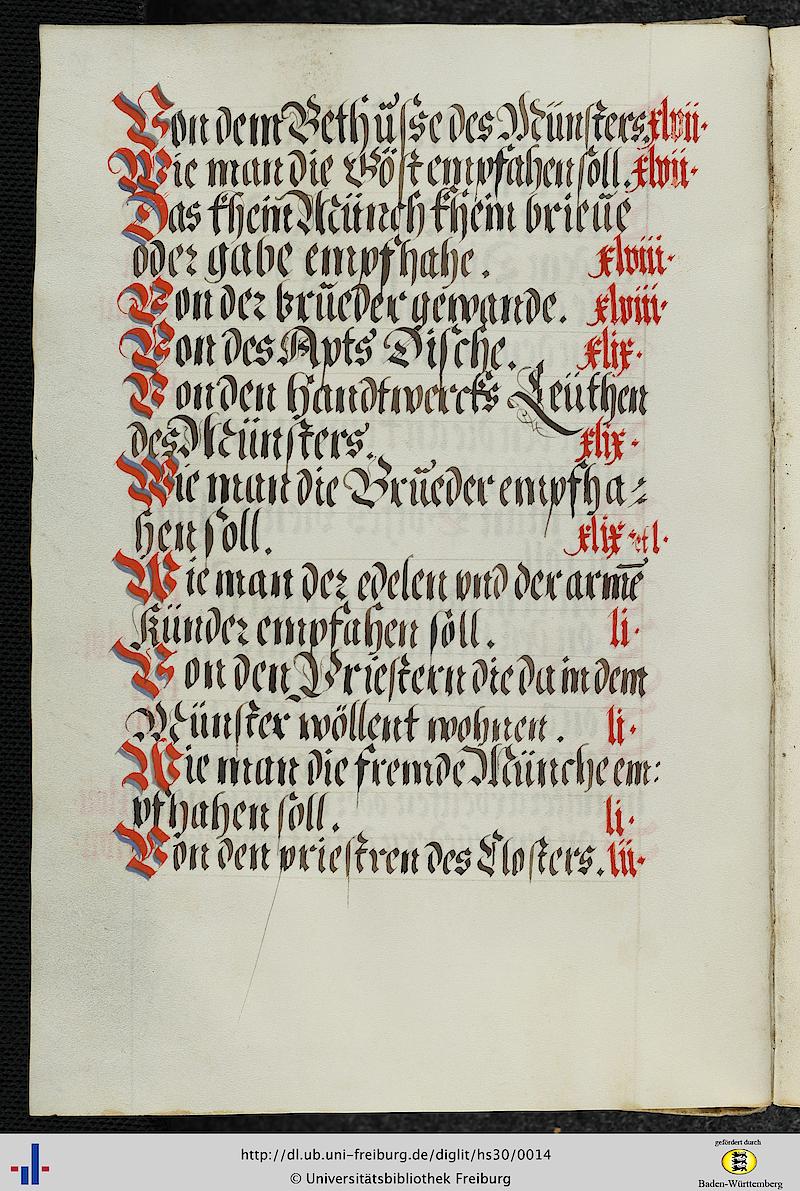 Von dem Bethůsse des Münsters. xlvii·
Wie man die Göst empfahen soll. xlvii·
Das khein Münch khein brieüe
oder gabe empfhahe. xlviii·
Von der brůeder gewande. xlviii·
Von des Apts Dische. xlix·
Von den Handtwercks Leüthen
des Münsters. xlix·
Wie man die Brůeder empfha⸗
hen soll. xlix et l·
Wie man der edelen vnd der armē
Künder empfahen söll. li·
Von den Priestern die da in dem
Münster wöllent wohnen. li·
Wie man die fremde Münche em:
pfhahen soll. li·
Von den priestren des Closters. lii·
gefördert durch
http://dl.ub.uni-freiburg.de/diglit/hs30/0014
© Universitätsbibliothek Freiburg
Baden-Württemberg